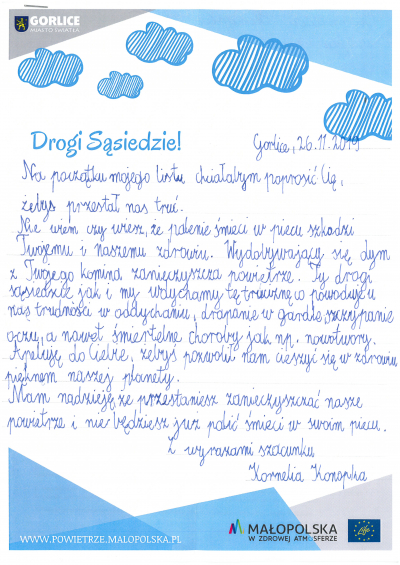 GORLICE
MIASTO ŚWIATŁA
Drogi Sąsiedzie!
Gorlice, 26.11.2019
Na początku mojego listu chciałabym poprosić Cię,
żebyś przestał nas truć.
Nie wiem czy wiesz, że palenie śmieci w piecu szkodzi
Twojemu i naszemu zdrowiu. Wydobywający się dym
z Twojego komina zanieczyszcza powietrze. Ty drogi
sąsiedzie jak i my wdychamy tę truciznę, a powoduje u
nas trudności w oddychaniu, drapanie w gardle, szczypanie
oczu, a nawet śmiertelne choroby jak np. nowotwory.
Apeluję do Ciebie, żebyś pozwolił nam cieszyć się w zdrowiu
pięknem naszej planety.
Mam nadzieję że przestaniesz zanieczyszczać nasze
powietrze i nie będziesz już palić śmieci w swoim piecu.
Z wyrazami szacunku
Kornelia Konopka
WWW.POWIETRZE.MALOPOLSKA.PL
MAŁOPOLSKA
W ZDROWEJ ATMOSFERZE
Life